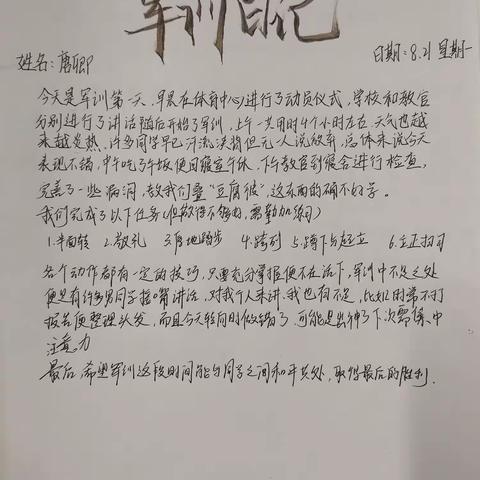 军训日记
姓名:唐卿
日期:8.21 星期一
今天是军训第一天,早晨在体育中心进行了动员仪式,学校和教官
分别进行了讲话随后开始了军训,上午一共用时4个小时左右,天气也越
来越炎热,许多同学早已汗流浃背但无一人说放弃,总体来说今天
表现不错,中午吃了午饭便回寝室午休,下午教官到宿舍进行检查,
完善了一些漏洞,教我们叠“豆腐被”,这东西的确不好学。
我们完成了以下任务(但做得不够好,需勤加练习)
1.半面转 2.敬礼 3.原地踏步 4.跨列 5.蹲下与起立 6.立正稍司
各个动作都有一定的技巧,只要充分掌握便不在话下,军训中不足之处
便是有许多男同学抢着讲话,对我个人来讲,我也有不足,比如时常不打
报告便整理头发,而且今天转向时做错了,可能是出神了下次需集中
注意力
最后,希望军训这段时间能与同学之间和平共处,取得最后的胜利.